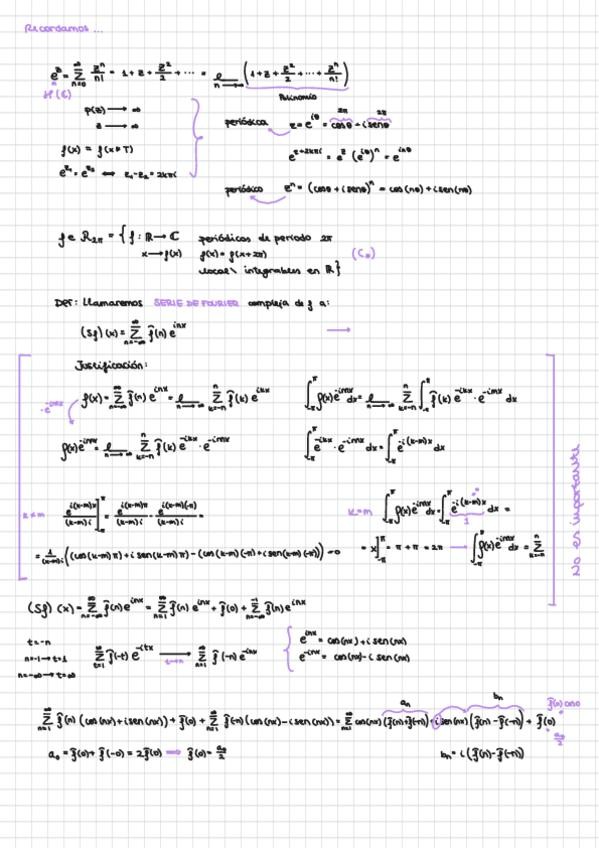 Recordamos ...
e^z = Σ_{n=0}^{∞} z^n/n! = 1 + z + z²/2 + ··· = ℓ_{n→∞} (1 + z + z²/2 + ··· + z^n/n!)
H(ℂ)
Polinomio
p(z) → ∞
z → ∞
f(x) = f(x+T)
e^{z₁} = e^{z₂} ⟺ z₁ - z₂ = 2kπi
2π 2π
periódica z = e^{iθ} = cosθ + i senθ
e^{z+2kπi} = e^z (e^{iθ})^n = e^{inθ}
periódico e^n = (cosθ + i senθ)^n = cos(nθ) + i sen(nθ)
f ∈ R_{2π} = { f : ℝ → ℂ periódicas de período 2π
x → f(x) f(x) = f(x+2π)
local\ integrables en ℝ}
Def: Llamaremos SERIE DE FOURIER compleja de f a:
(Sf)(x) = Σ_{n=-∞}^{∞} f̂(n) e^{inx} →
Justificación:
f(x) = Σ_{n=-∞}^{∞} f̂(n) e^{inx} = ℓ_{n→∞} Σ_{k=-n}^{n} f̂(k) e^{ikx}
∫_{-π}^{π} f(x) e^{-imx} dx = ℓ_{n→∞} Σ_{k=-n}^{n} ∫_{-π}^{π} f̂(k) e^{-ikx} · e^{-imx} dx
· e^{-imx}
f(x) e^{-imx} = ℓ_{n→∞} Σ_{k=-n}^{n} f̂(k) e^{-ikx} · e^{-imx}
∫_{-π}^{π} e^{-ikx} · e^{-imx} dx = ∫_{-π}^{π} e^{-i(k-m)x} dx
k≠m e^{i(k-m)x}/(k-m)i ]_{-π}^{π} = e^{i(k-m)π}/(k-m)i - e^{i(k-m)(-π)}/(k-m)i =
k=m ∫_{-π}^{π} f(x) e^{-imx} dx = ∫_{-π}^{π} e^{-i(k-m)x} dx =
1
= 1/(k-m)i ((cos(k-m)π) + i sen(k-m)π) - (cos(k-m)(-π) + i sen(k-m)(-π))) = 0
= x]_{-π}^{π} = π + π = 2π → ∫_{-π}^{π} f(x) e^{-imx} dx = Σ_{k=-n}^{n}
No es importante
(Sf)(x) = Σ_{n=-∞}^{∞} f̂(n) e^{inx} = Σ_{n=1}^{∞} f̂(n) e^{inx} + f̂(0) + Σ_{n=-∞}^{-1} f̂(n) e^{inx}
t = -n
n=-1 → t=1
n=-∞ → t=∞
Σ_{t=1}^{∞} f̂(-t) e^{-itx} → Σ_{n=1}^{∞} f̂(-n) e^{-inx}
t→n
e^{inx} = cos(nx) + i sen(nx)
e^{-inx} = cos(nx) - i sen(nx)
a_n b_n f̂(0) cos0
Σ_{n=1}^{∞} f̂(n) (cos(nx) + i sen(nx)) + f̂(0) + Σ_{n=1}^{∞} f̂(-n) (cos(nx) - i sen(nx)) = Σ_{n=1}^{∞} cos(nx) (f̂(n) + f̂(-n)) + i sen(nx) (f̂(n) - f̂(-n)) + f̂(0)
a₀/2
a₀ = f̂(0) + f̂(-0) = 2f̂(0) ⟹ f̂(0) = a₀/2
b_n = i (f̂(n) - f̂(-n))